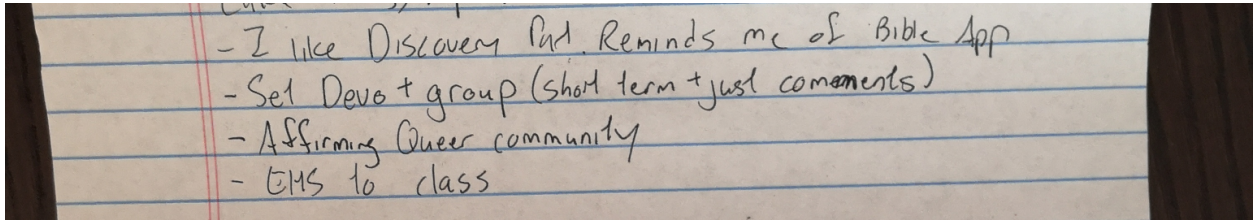 - I like Discovery Pad. Reminds me of Bible App
- Set Devo + group (short term + just comments)
- Affirming Queer community
- EHS to class